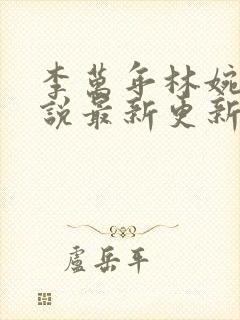 李萬年林婉
說最新更新
盧岳平